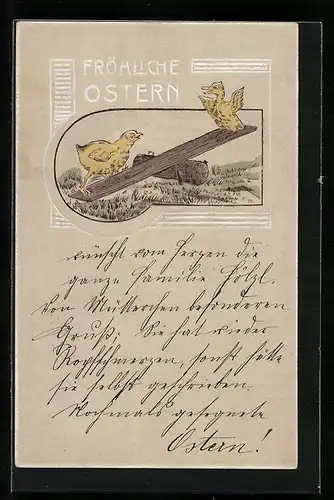 FRÖHLICHE
OSTERN
wünscht vom Herzen die
ganze Familie Hölzl.
Von Mütterchen besonderen
Gruß. Sie hat wieder
Kopfschmerzen, sonst hätte
sie selbst geschrieben.
Nochmals gesegnete
Ostern!